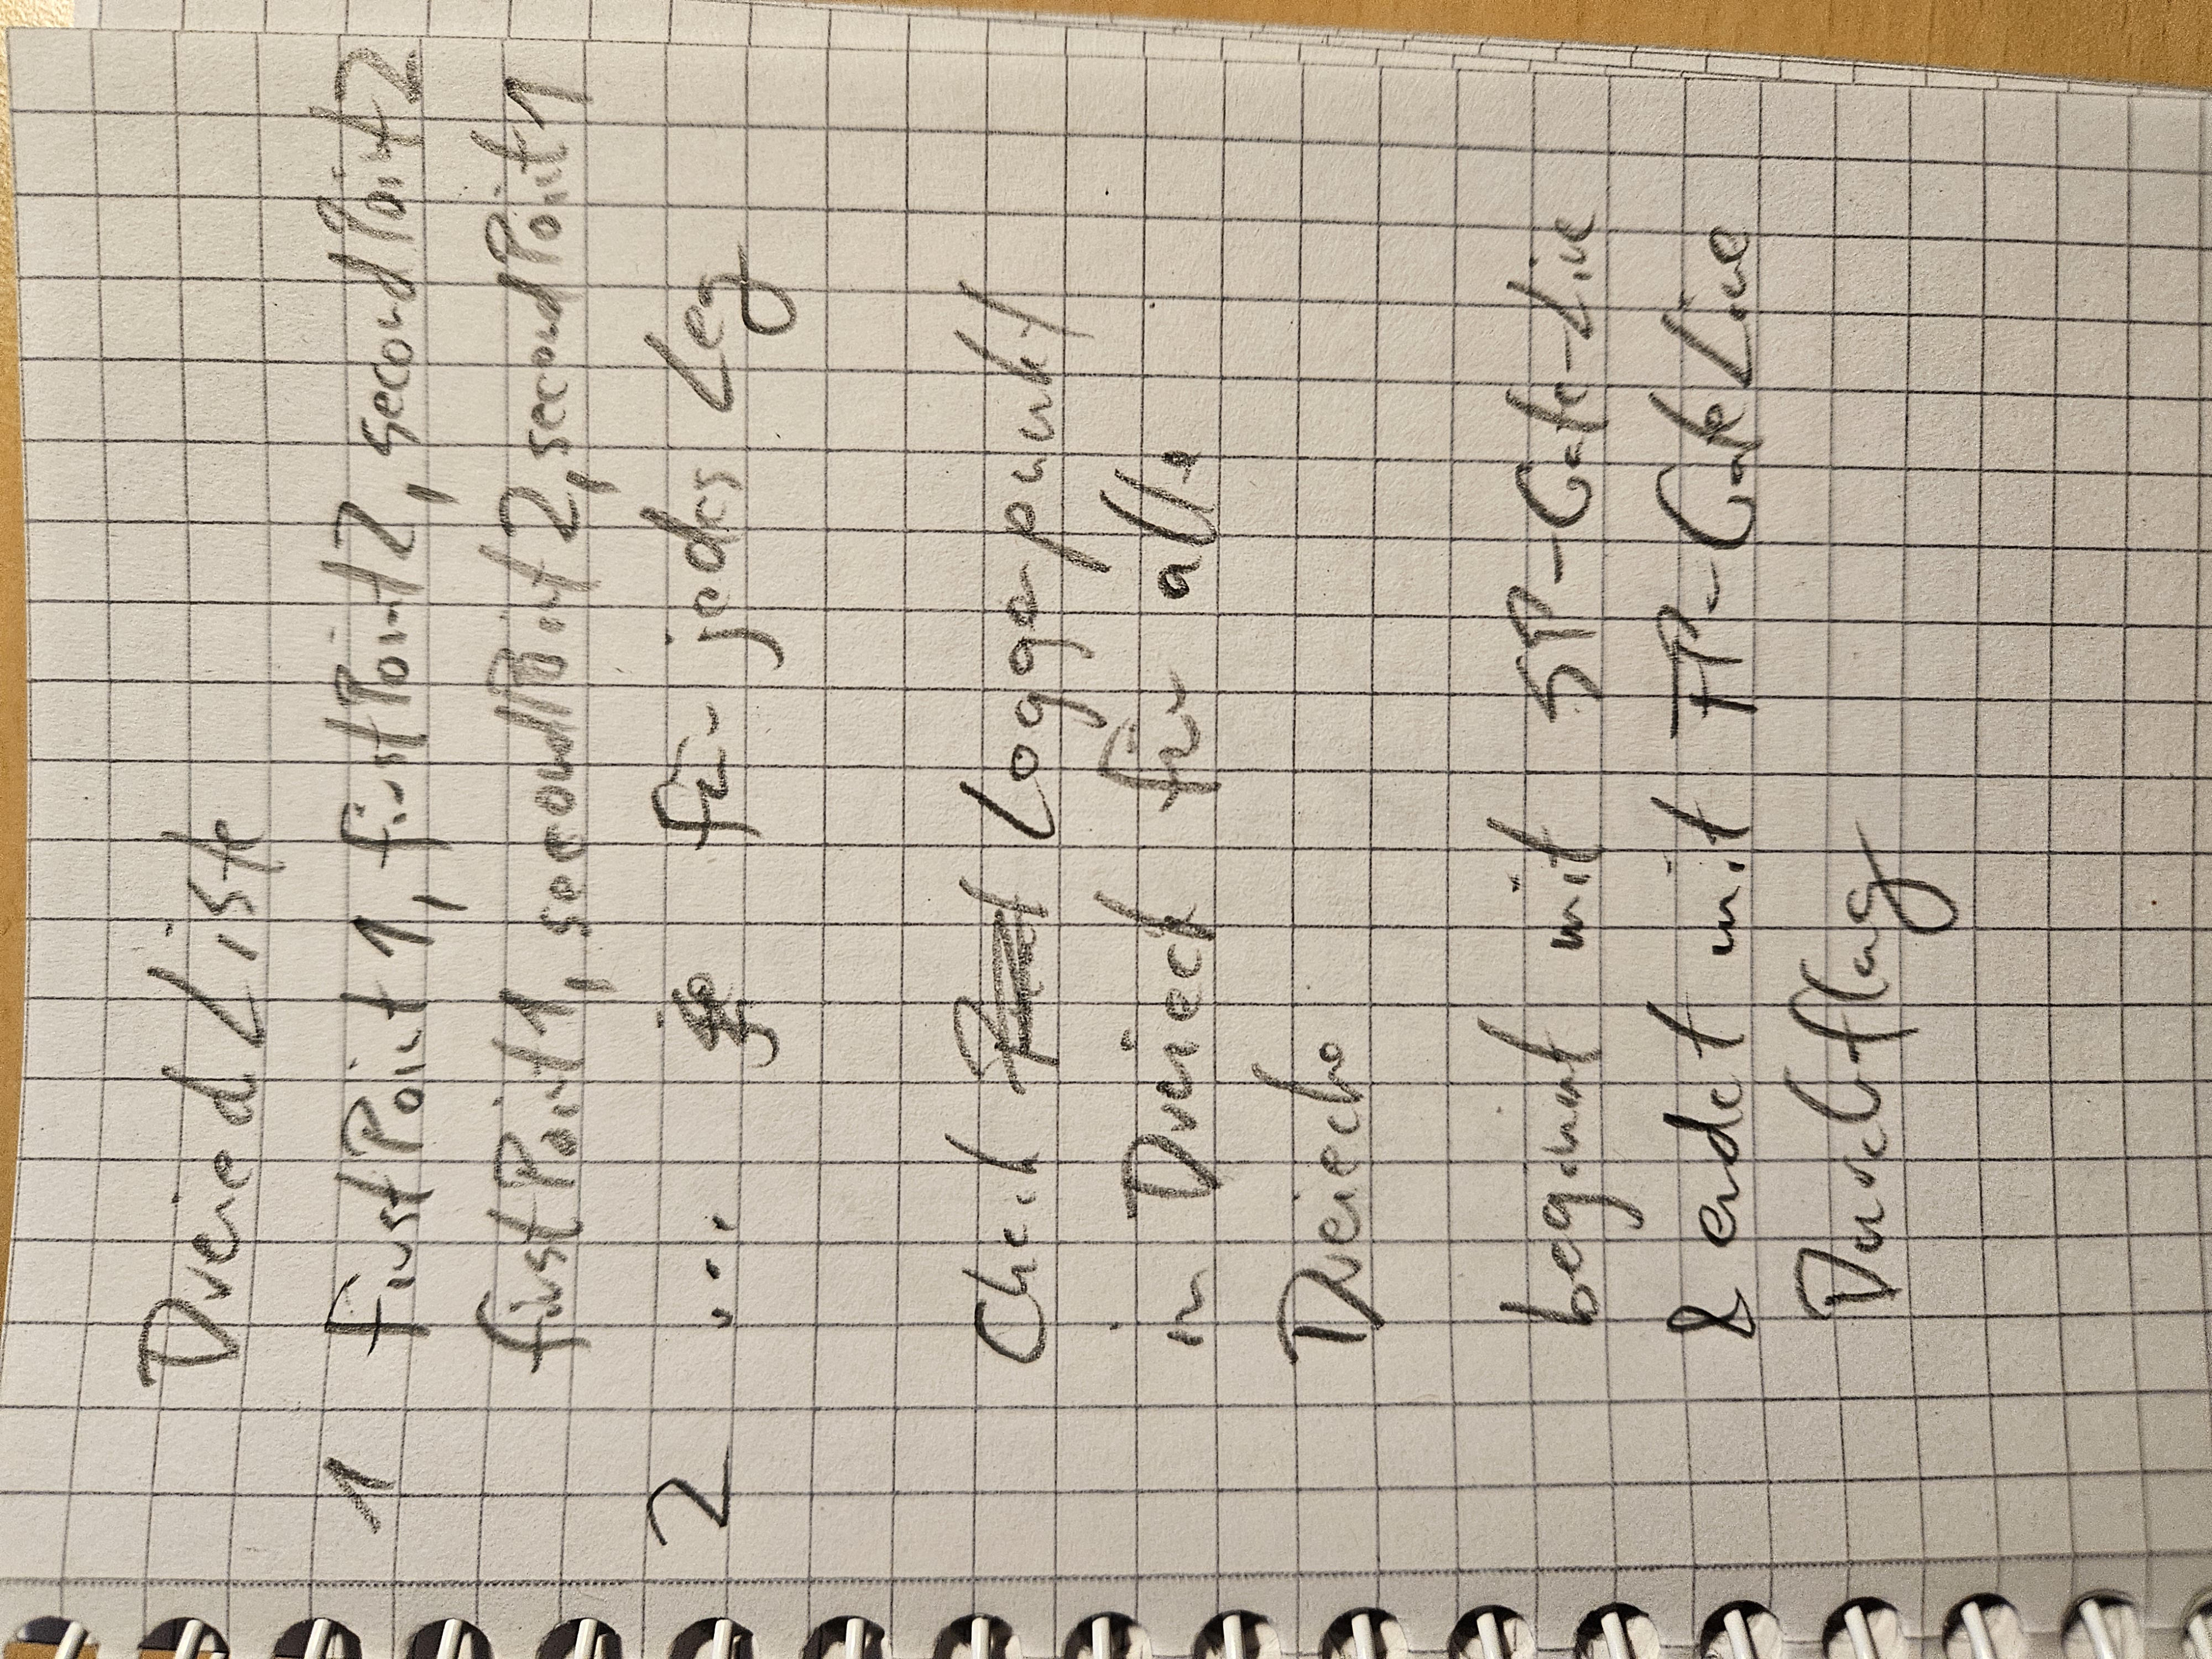 Dreieck Liste
1 FirstPoint1, firstPoint2, secondPoint2
firstPoint1, secondPoint2, secondPoint1
2 ... für jedes Leg
Check Loggerpunkt
in Dreieck für alle
Dreiecke
beginnt mit SP-Gate-Line
& endet mit FP-GateLine
Durchflug